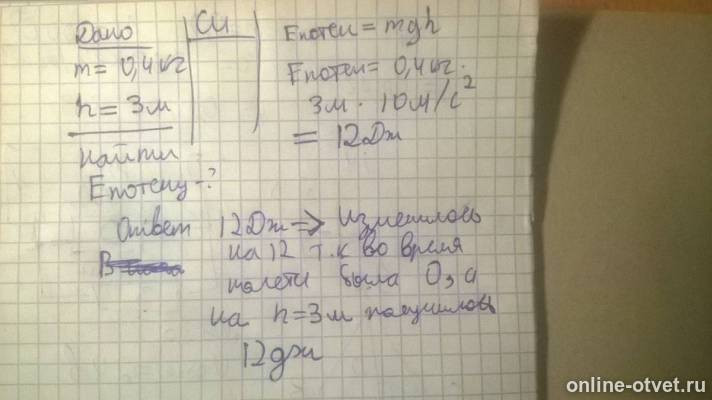 Дано
СИ
m = 0,4 кг
h = 3 м
Найти
Eпотенц - ?
Eпотен = mgh
Eпотен = 0,4 кг ·
3 м · 10 м/с²
= 12 Дж
Ответ 12 Дж => Изменилось
на 12 т.к во время
была 0, а
на h = 3 м получилось
12 дж
online-otvet.ru